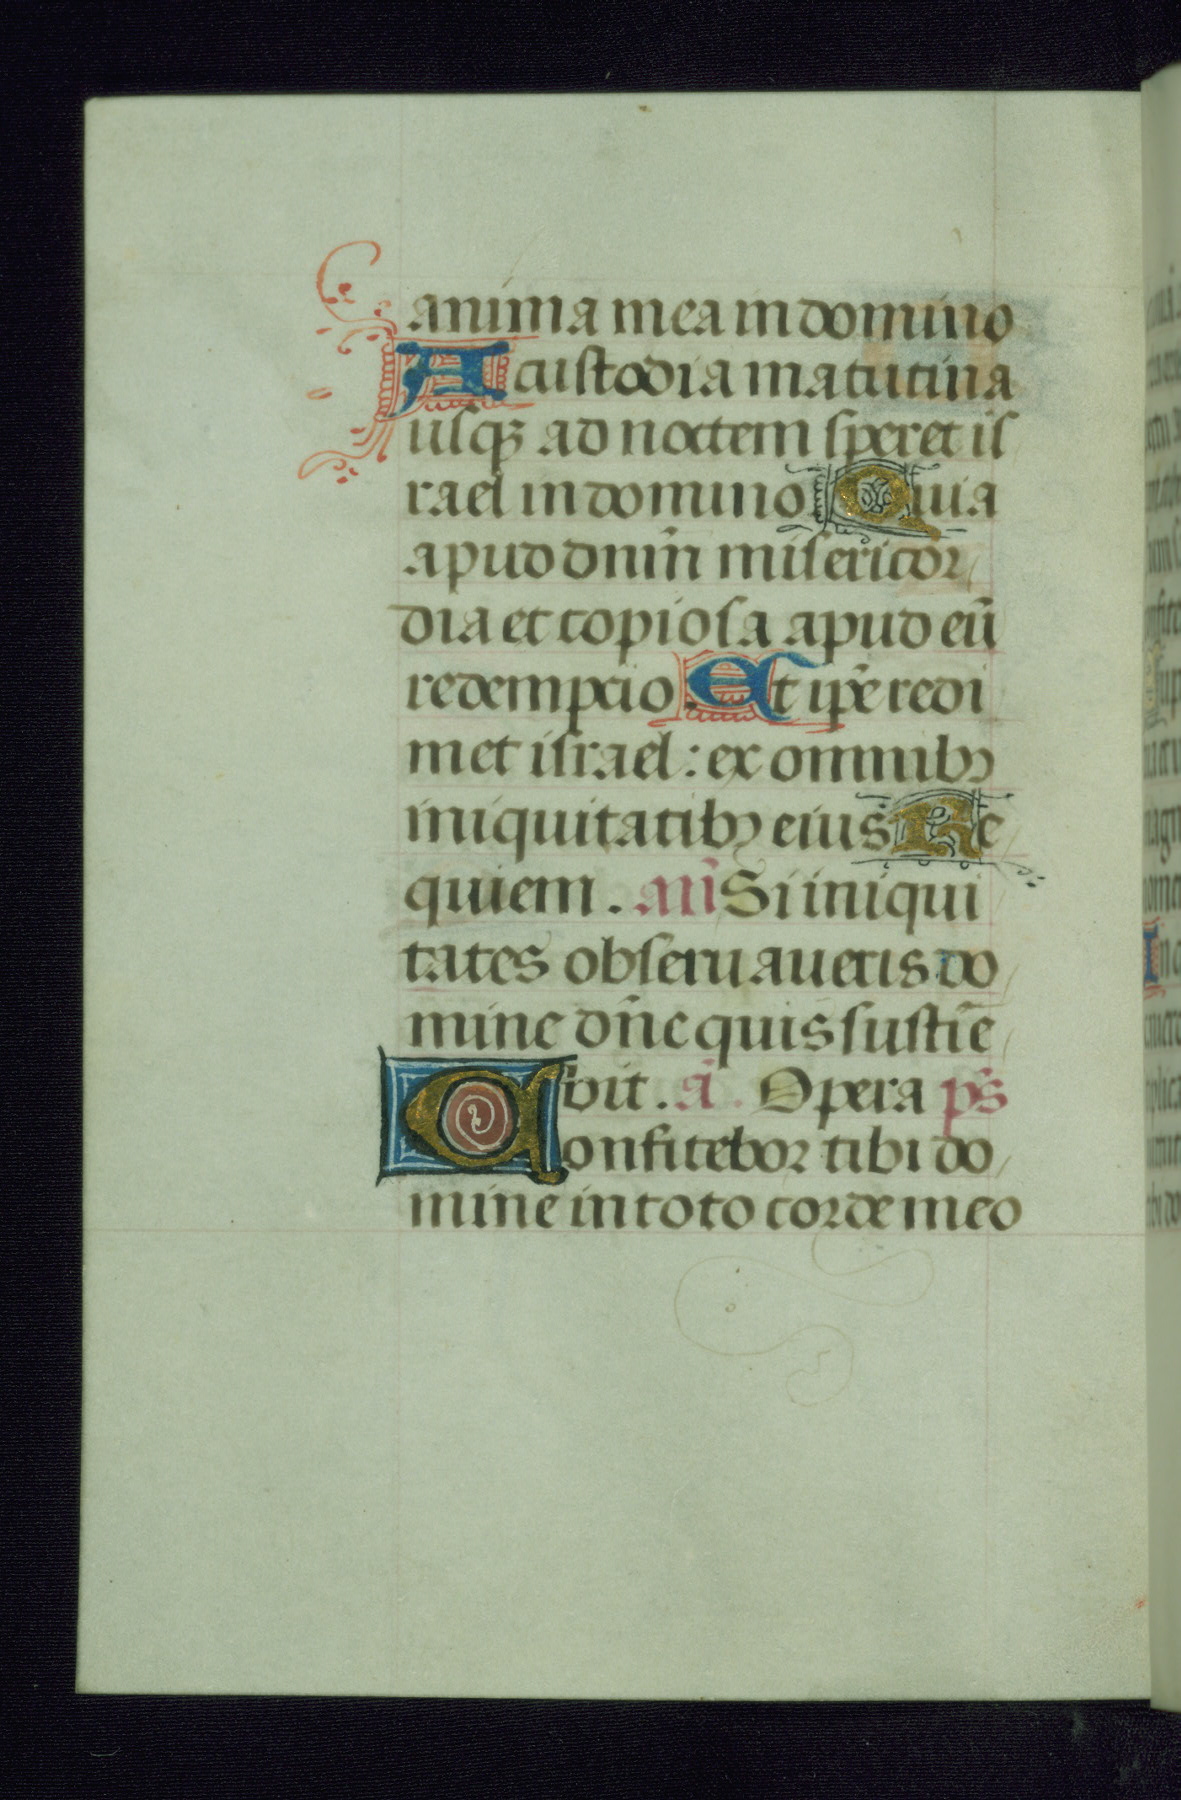 anima mea in domino
A custodia matutina
usqꝫ ad noctem speret is
rael in domino Quia
apud dn̄m misericor
dia et copiosa apud eū
redempcio Et ip̄e redi
met israel: ex omnibꝫ
iniquitatibꝫ eius Re
quiem. an̄ Si iniqui
tates obseruaueris do
mine dn̄e quis sustīe
bit. ā. Opera p̄s
Confitebor tibi do
mine in toto corde meo